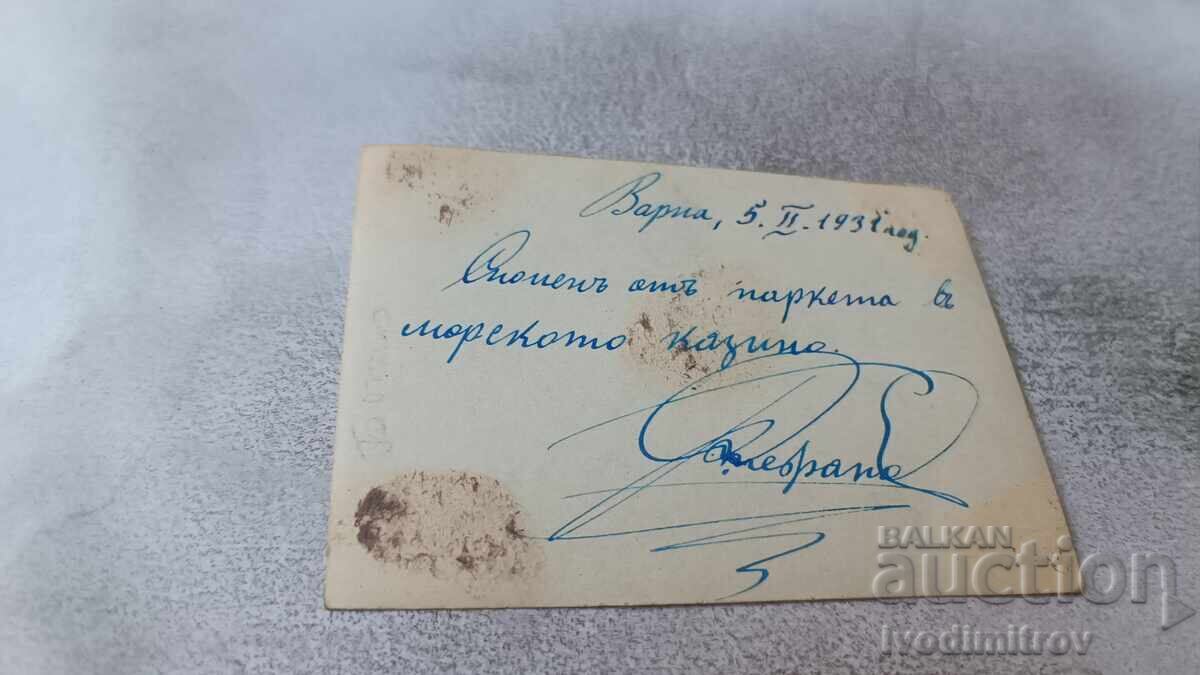 Варна, 5. II. 1931 год.
Споменъ отъ паркета въ
морското казино.
BALKAN
auction
ivodimitrov